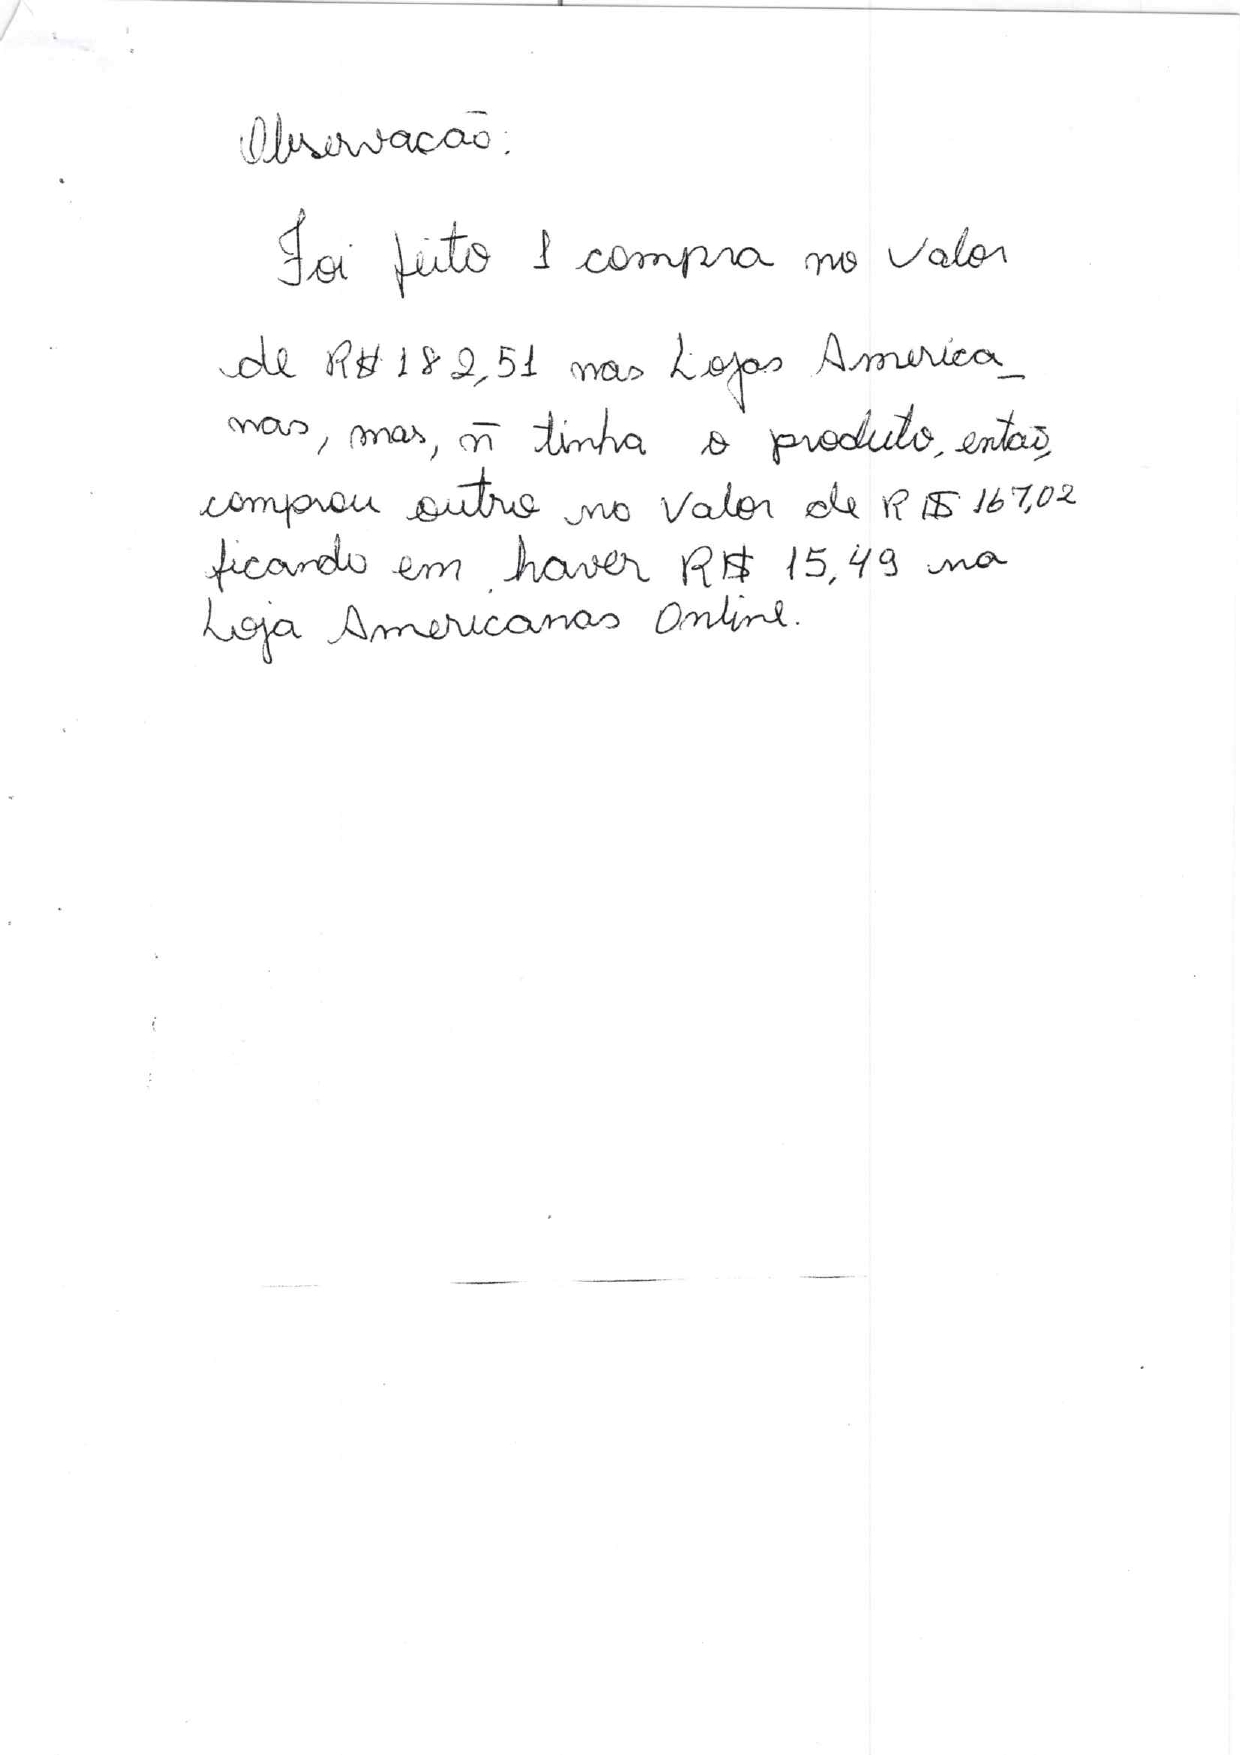 Observacão:
Foi feito 1 compra no valor
de R$ 182,51 nas Lojas America_
nas, mas, ñ tinha o produto, então,
comprou outro no valor de R$ 167,02
ficando em haver R$ 15,49 na
Loja Americanas Online.